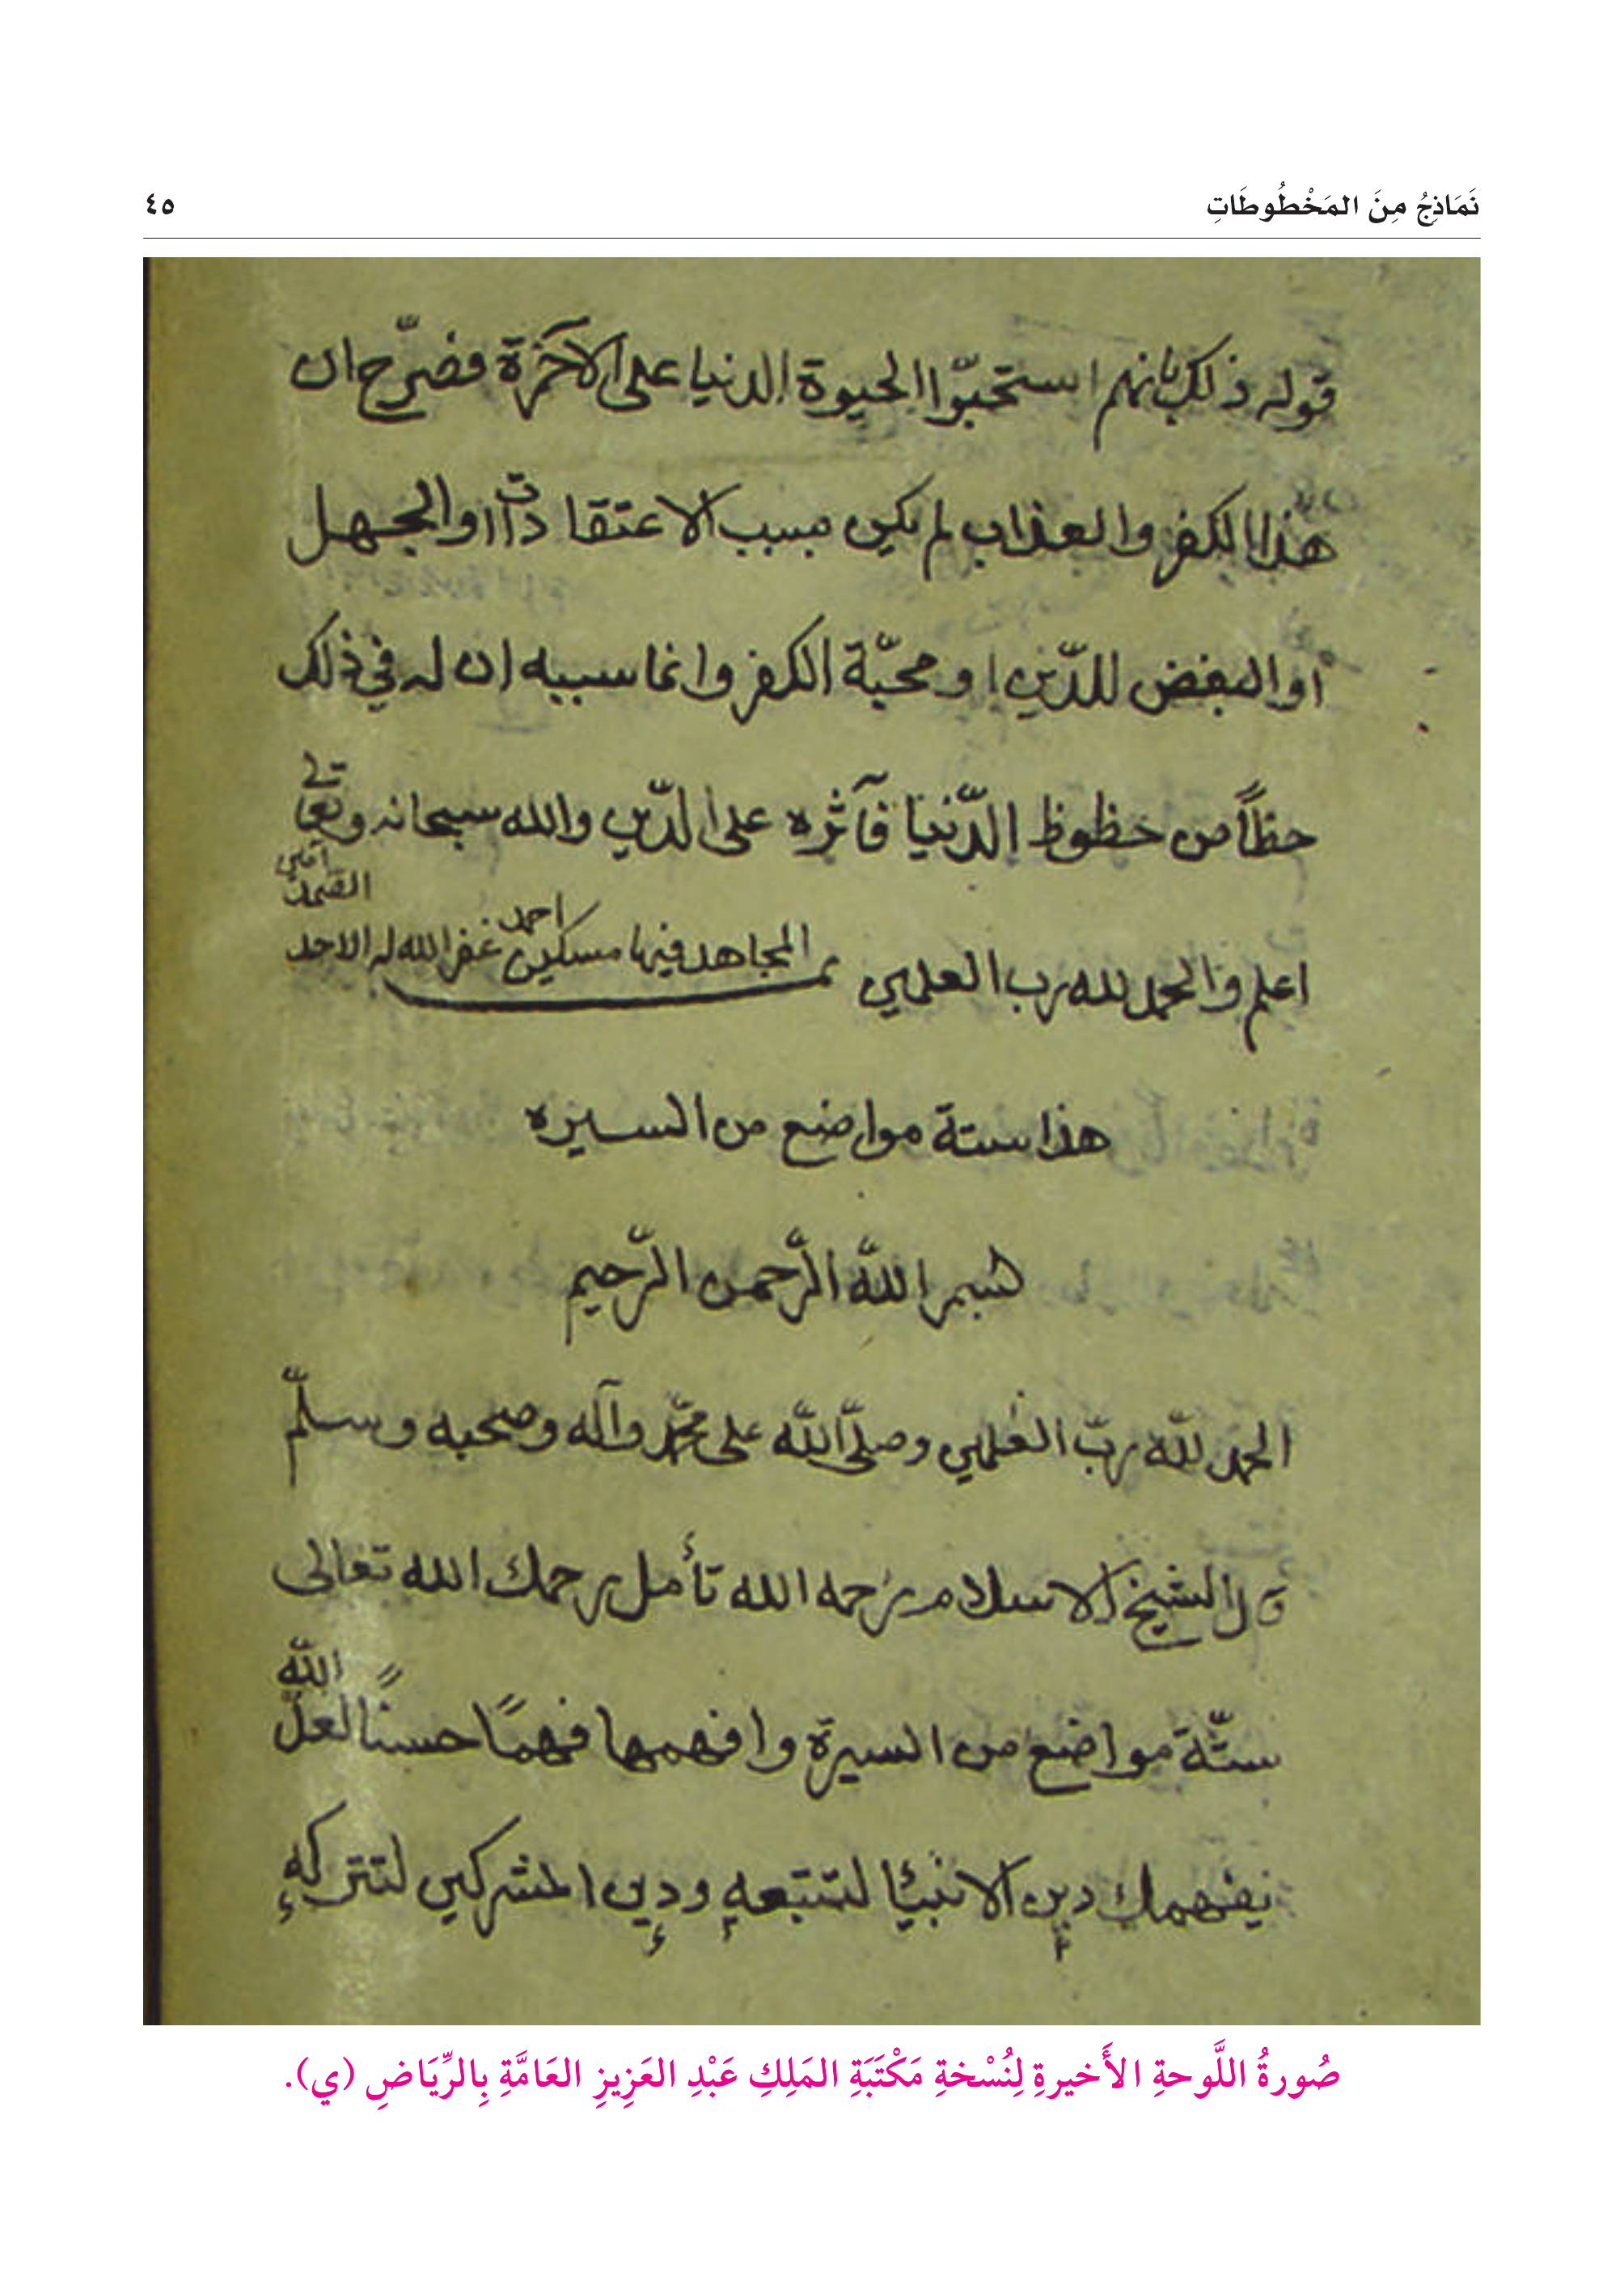 نَمَاذِجُ مِنَ المَخْطُوطَاتِ ٤٥
قوله ذلك بانهم استحبّوا الحيوة الدنيا على الآخرة فصرّح ان
هذا الكفر والعذاب لم يكن بسبب الاعتقادات اوالجهل
اوالبغض للدّين او محبّة الكفر وانما سببه ان له في ذلك
حظاً من حظوظ الدّنيا فآثره على الدّين والله سبحانه وتعالى
اعلم والحمد لله رب العلمين تم المجاهد فيها مسكين احمد غفر الله له الاحد الصمد آمين
هذا ستة مواضع من السيره
بسم الله الرّحمن الرّحيم
الحمد لله ربّ العلمين وصلّى الله على محمّد وآله وصحبه وسلّم
قال الشيخ الاسلام رحمه الله تأمل رحمك الله تعالى
ستّة مواضع من السيرة وافهمها فهمًا حسنًا لعلّ الله
يفهمك دين الانبيا لتتبعه ودين المشركين لتتركه
صُورةُ اللَّوحةِ الأَخيرةِ لِنُسْخةِ مَكْتَبَةِ المَلِكِ عَبْدِ العَزِيزِ العَامَّةِ بِالرِّيَاضِ (ي).